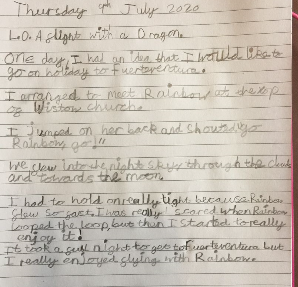 Thursday 9th July 2020
L.O. A flight with a Dragon.
One day, I had an idea that I would like to
go on holiday to fuerteventura.
I arranged to meet Rainbow at the top
of Wiston church.
I jumped on her back and shouted "go
Rainbow, go!"
We flew into the night sky, through the clouds
and towards the moon.
I had to hold on really tight because Rainbow
flew so fast. I was really scared when Rainbow
looped the loop, but than I started to really
enjoy it!
It took a full night to get to Fuerteventura but
I really enjoyed flying with Rainbow.